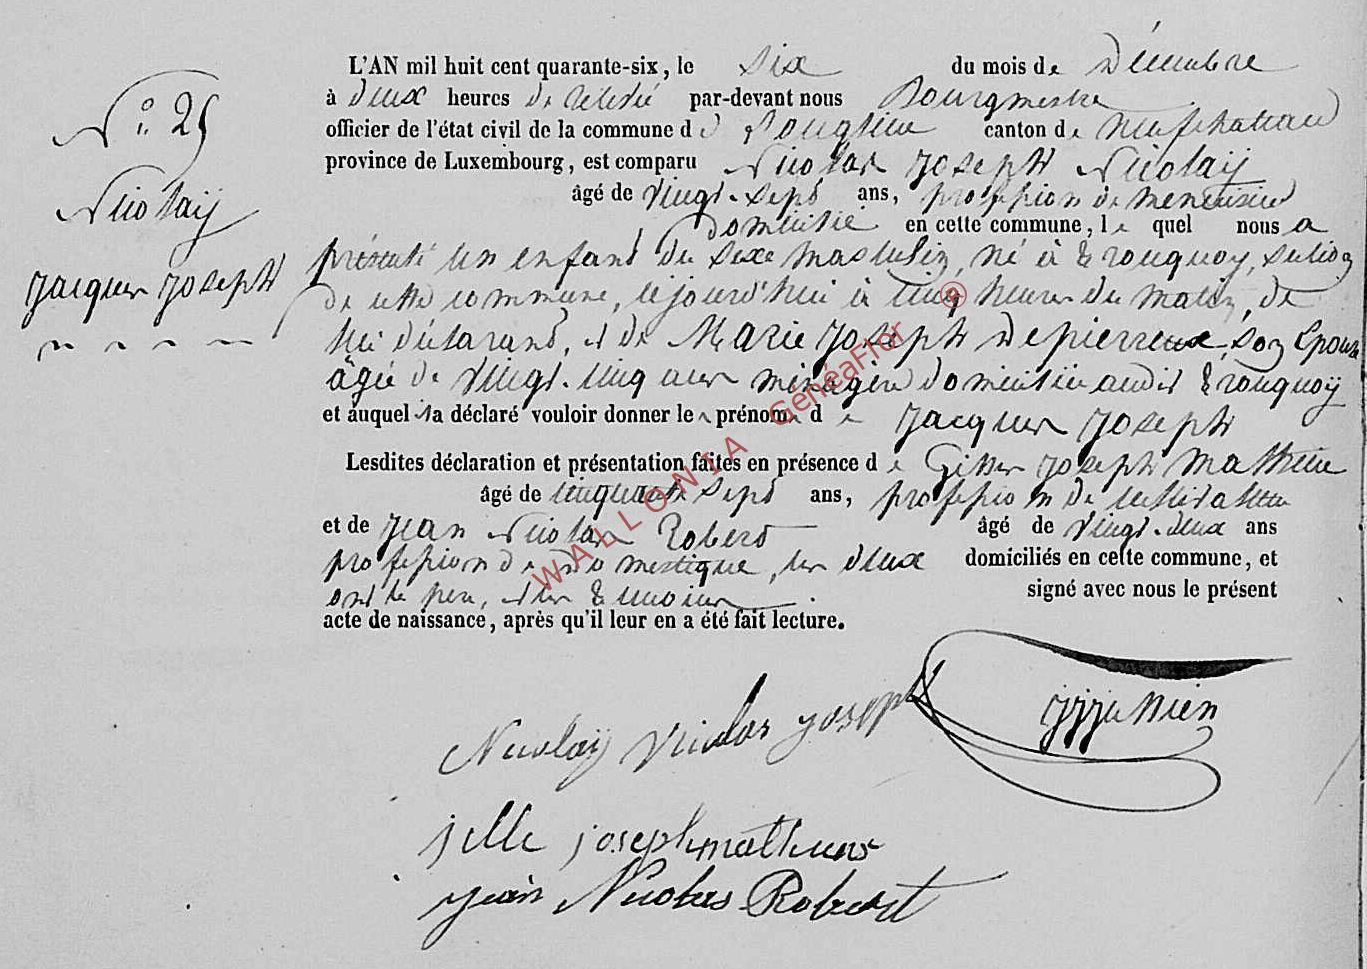 N.° 25
Nicolaÿ
Jacques Joseph
L'AN mil huit cent quarante-six, le six du mois de Décembre
à deux heures de relevée par-devant nous Bourgmestre
officier de l'état civil de la commune d canton de Neufchateau
province de Luxembourg, est comparu Nicolas Joseph Nicolaÿ
âgé de vingt-sept ans, profession de menuisier
domicilié en cette commune, le quel nous a
présenté un enfant du sexe masculin, né à Trouquoy, section
de cette commune, cejourd'hui à cinq heures du matin, de
lui déclarant, et de Marie Joseph Depierreux, son Epouse
âgée de vingt-cinq ans ménagère domiciliée audit Trouquoÿ
et auquel il a déclaré vouloir donner les prénoms de Jacques Joseph
Lesdites déclaration et présentation faites en présence de Joseph Mathieu
âgé de cinquante sept ans, profession de cultivateur
et de Jean Nicolas Robert âgé de vingt-deux ans
profession de domestique, les deux domiciliés en cette commune, et
ont le père, et les témoins signé avec nous le présent
acte de naissance, après qu'il leur en a été fait lecture.
Nicolaÿ Nicolas Joseph
joseph mathieu
jean Nicolas Robert
WALLONIA GenéaFlor ®